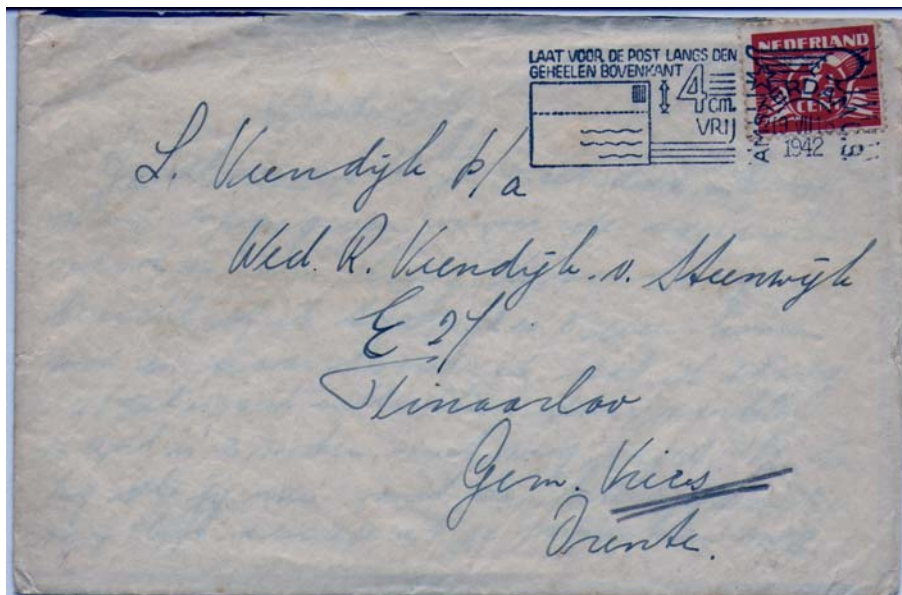 LAAT VOOR DE POST LANGS DEN
GEHEELEN BOVENKANT
4 cm.
VRIJ
NEDERLAND
5
CENT
AMSTERDAM
VIII
1942
L. Veendijk p/a
Wed. R. Veendijk. v. Steenwijk
E 27
Tinaarloo
Gem. Vries
Drente.